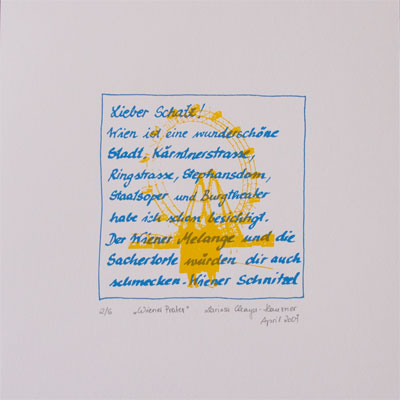 Lieber Schatz!
Wien ist eine wunderschöne
Stadt, Kärntnerstrasse,
Ringstrasse, Stephansdom,
Staatsoper und Burgtheater
habe ich schon besichtigt.
Der Wiener Melange und die
Sachertorte würden dir auch
schmecken. Wiener Schnitzel
2/6 „Wiener Prater"
April